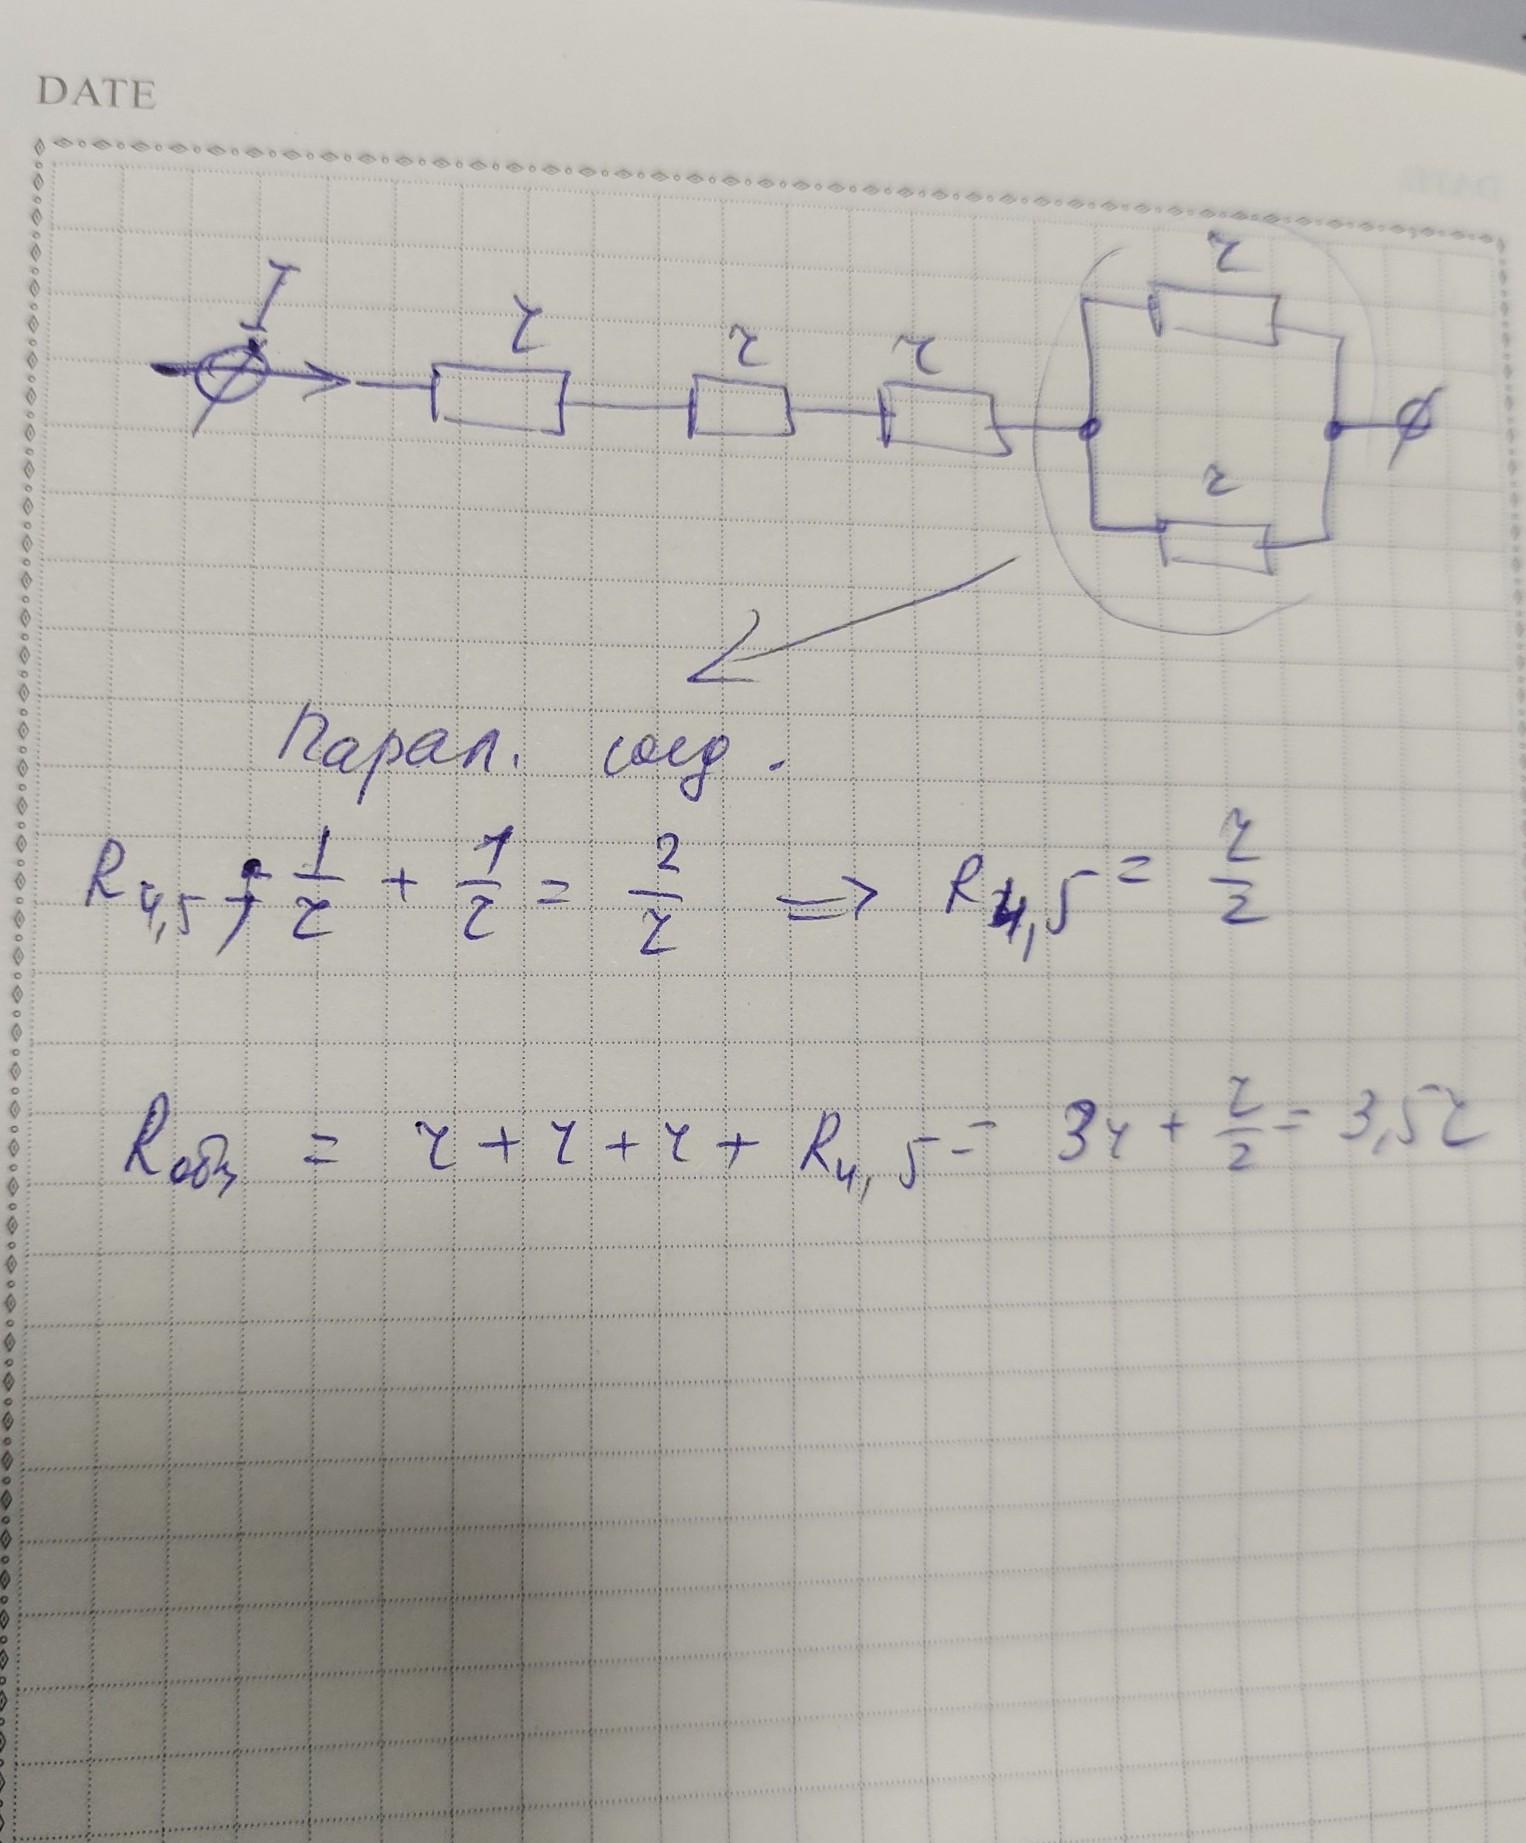 DATE
I
r r r r
r
Парал. соед.
R4,5 = 1/r + 1/r = 2/r => R4,5 = r/2
Rобщ = r + r + r + R4,5 = 3r + r/2 = 3,5r